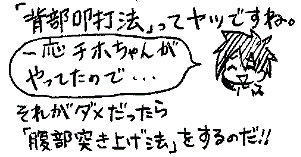 「背部叩打法」ってヤツですね。
一応チホちゃんが
やってたので・・・
それがダメだったら
「腹部突き上げ法」をするのだ!!